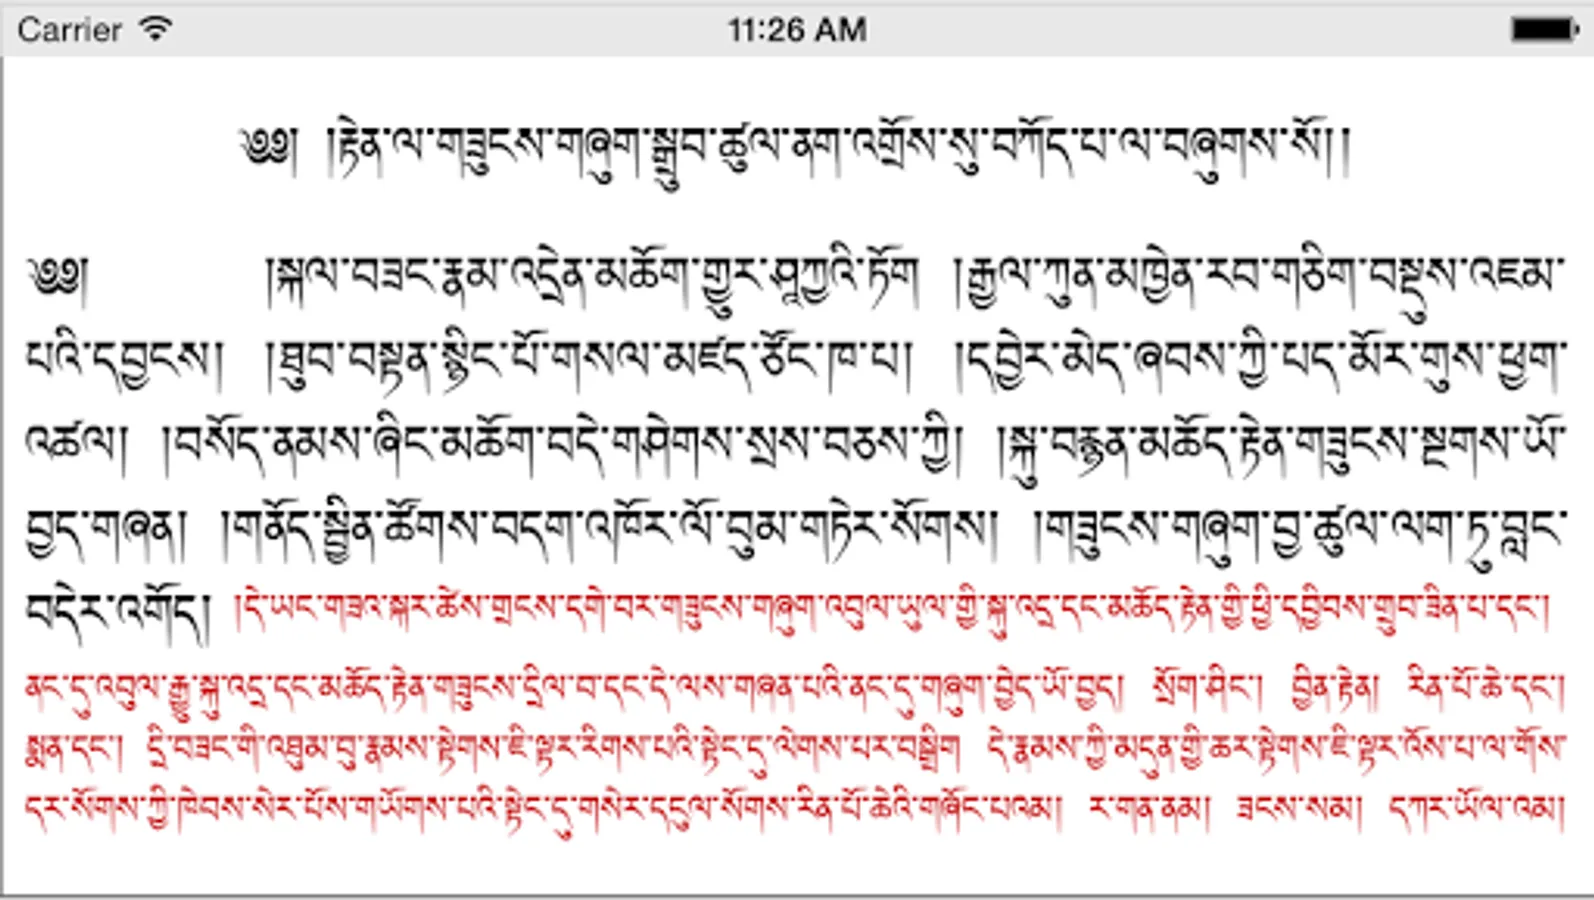 Carrier 11:26 AM
༄༅། །རྟེན་ལ་གཟུངས་གཞུག་སྒྲུབ་ཚུལ་ནག་འགྲོས་སུ་བཀོད་པ་ལ་བཞུགས་སོ།།
༄༅། །སྐལ་བཟང་རྣམ་འདྲེན་མཆོག་གྱུར་ཤཱཀྱའི་ཏོག །རྒྱལ་ཀུན་མཁྱེན་རབ་གཅིག་བསྡུས་འཇམ་
པའི་དབྱངས། །ཐུབ་བསྟན་སྙིང་པོ་གསལ་མཛད་ཙོང་ཁ་པ། །དབྱེར་མེད་ཞབས་ཀྱི་པད་མོར་གུས་ཕྱག་
འཚལ། །བསོད་ནམས་ཞིང་མཆོག་བདེ་གཤེགས་སྲས་བཅས་ཀྱི། །སྐུ་བརྙན་མཆོད་རྟེན་གཟུངས་སྔགས་ཡོ་
བྱད་གཞན། །གནོད་སྦྱིན་ཚོགས་བདག་འཁོར་ལོ་བུམ་གཏེར་སོགས། །གཟུངས་གཞུག་བྱ་ཚུལ་ལག་ཏུ་བླང་
བདེར་འགོད། །དེ་ཡང་གཟའ་སྐར་ཚེས་གྲངས་དགེ་བར་གཟུངས་གཞུག་འབུལ་ཡུལ་གྱི་སྐུ་འདྲ་དང་མཆོད་རྟེན་གྱི་ཕྱི་དབྱིབས་གྲུབ་ཟིན་པ་དང་།
ནང་དུ་འབུལ་རྒྱུ་སྐུ་འདྲ་དང་མཆོད་རྟེན་གཟུངས་དྲིལ་བ་དང་དེ་ལས་གཞན་པའི་ནང་དུ་གཞུག་བྱེད་ཡོ་བྱད། སྲོག་ཤིང་། བྱིན་རྟེན། རིན་པོ་ཆེ་དང་།
སྨན་དང་། དྲི་བཟང་གི་འཐུམ་བུ་རྣམས་སྟེགས་ཇི་ལྟར་རིགས་པའི་སྟེང་དུ་ལེགས་པར་བསྒྲིག དེ་རྣམས་ཀྱི་མདུན་གྱི་ཆར་སྟེགས་ཇི་ལྟར་འོས་པ་ལ་གོས་
དར་སོགས་ཀྱི་ཁེབས་སེར་པོས་གཡོགས་པའི་སྟེང་དུ་གསེར་དངུལ་སོགས་རིན་པོ་ཆེའི་གཞོང་པའམ། ར་གན་ནམ། ཟངས་སམ། དཀར་ཡོལ་འམ།